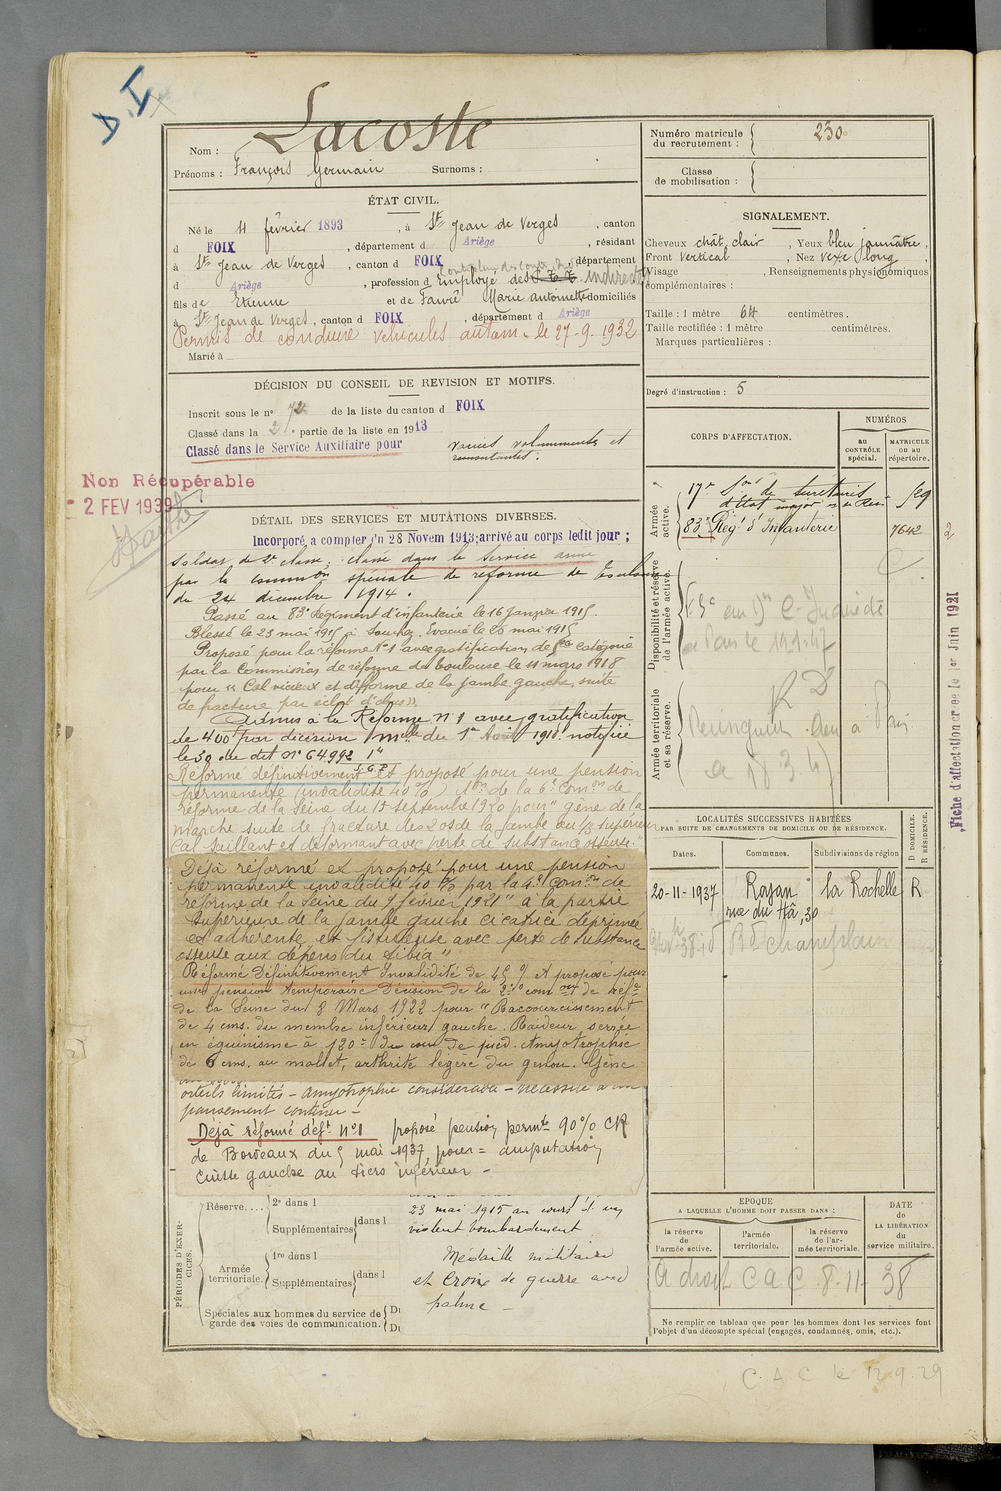 D.I
Nom : Lacoste
Prénoms : François Germain Surnoms :
ÉTAT CIVIL.
Né le 4 février 1893, à St Jean de Verges, canton
d FOIX, département d Ariège, résidant
à St Jean de Verges, canton d FOIX, département
d Ariège, profession d employé des C.T.T. indirectes
fils de Etienne et de Faure Marie antoinette domiciliés
à St Jean de Verges, canton d FOIX, département d Ariège
Permis de conduire vehicules autom. le 27-9-1932
Marié à
DÉCISION DU CONSEIL DE REVISION ET MOTIFS.
Inscrit sous le n° 72 de la liste du canton d FOIX
Classé dans la 2e partie de la liste en 1913
Classé dans le Service Auxiliaire pour varices volumineuses et
remontantes.
Non Récupérable
2 FEV 1939
DÉTAIL DES SERVICES ET MUTATIONS DIVERSES.
Incorporé à compter du 28 Novem 1913; arrivé au corps ledit jour ;
Soldat de 2e classe, classé dans le Service armé
par la common spéciale de réforme de Toulouse
du 24 décembre 1914.
Passé au 83e Régiment d'infanterie le 16 Janvier 1915.
Blessé le 23 mai 1915 à Souchez. Evacué le 26 mai 1915
Proposé pour la réforme N°1 avec gratification de 5e catégorie
par la Commission de réforme de Toulouse le 11 mars 1918
pour " Cal vicieux et difforme de la jambe gauche, suite
de fracture par éclat d'obus".
Admis à la Réforme n°1 avec gratification
de 400f par décision Mlle du 1er Août 1918 notifiée
le 30 du dit N° 64992 1°
S.G.P.
Réformé définitivement et proposé pour une pension
permanente (invalidité 40%) de la 6e Comon de
réforme de la Seine du 15 septembre 1920 pour " gêne de la
marche suite de fracture des 2 os de la jambe au 1/3 supérieur
Cal saillant et déformant avec perte de substance osseuse.
Déjà réformé et proposé pour une pension
permanente invalidité 40% par la 4e Comon de
réforme de la Seine du 7 février 1921 " à la partie
supérieure de la jambe gauche cicatrice déprimée
et adhérente et fistuleuse avec perte de substance
osseuse aux dépens du tibia"
Réformé Définitivement Invalidité de 45% et proposé pour
une pension temporaire Décision de la 2e com on de réfe
de la Seine du 8 Mars 1922 pour " Raccourcissement
de 4 cms. du membre inférieur gauche. Raideur serrée
en équinisme à 120° du cou de pied. Amyotrophie
de 6 cms. au mollet, arthrite légère du genou. Gêne
orteils limités - amyotrophie considérable - nécessite
pansement continu -
Déjà réformé déft n°1 proposé pension permte 90% CR
de Bordeaux du 5 mai 1937, pour = amputation
cuisse gauche au tiers inférieur -
PÉRIODES D'EXERCICES.
Réserve.... 2e dans l
Supplémentaires dans l
Armée territoriale. 1re dans l
Supplémentaires dans l
Spéciales aux hommes du service de garde des voies de communication. { Du
{ Du
23 mai 1915 au cours d'un
violent bombardement
Médaille militaire
et Croix de guerre avec
palme -
Numéro matricule du recrutement : 230
Classe de mobilisation :
SIGNALEMENT.
Cheveux chât. clair, Yeux bleu jaunâtre,
Front Vertical, Nez vexe long,
Visage , Renseignements physionomiques
complémentaires :
Taille : 1 mètre 64 centimètres.
Taille rectifiée : 1 mètre centimètres.
Marques particulières :
Degré d'instruction : 5
CORPS D'AFFECTATION.
NUMÉROS
au CONTRÔLE spécial.
MATRICULE OU AU répertoire.
Armée active.
17e Son de Secrétaires
d'état major
83e Régt d'Infanterie 7642
Disponibilité et réserve de l'armée active.
Armée territoriale et sa réserve.
Fiche d'affectation créée le 1er Juin 1921
LOCALITÉS SUCCESSIVES HABITÉES
PAR SUITE DE CHANGEMENTS DE DOMICILE OU DE RÉSIDENCE.
Dates. Communes. Subdivisions de région
D DOMICILE. R RÉSIDENCE.
20-11-1937 Royan la Rochelle R
rue du Hâ, 30
Bd Champlain
EPOQUE
A LAQUELLE L'HOMME DOIT PASSER DANS :
la réserve de l'armée active.
l'armée territoriale.
la réserve de l'armée territoriale.
DATE de LA LIBÉRATION du service militaire.
A droit C A C 8-11-38
Ne remplir ce tableau que pour les hommes dont les services font
l'objet d'un décompte spécial (engagés, condamnés, omis, etc.).
C.A.C le 12.9.29